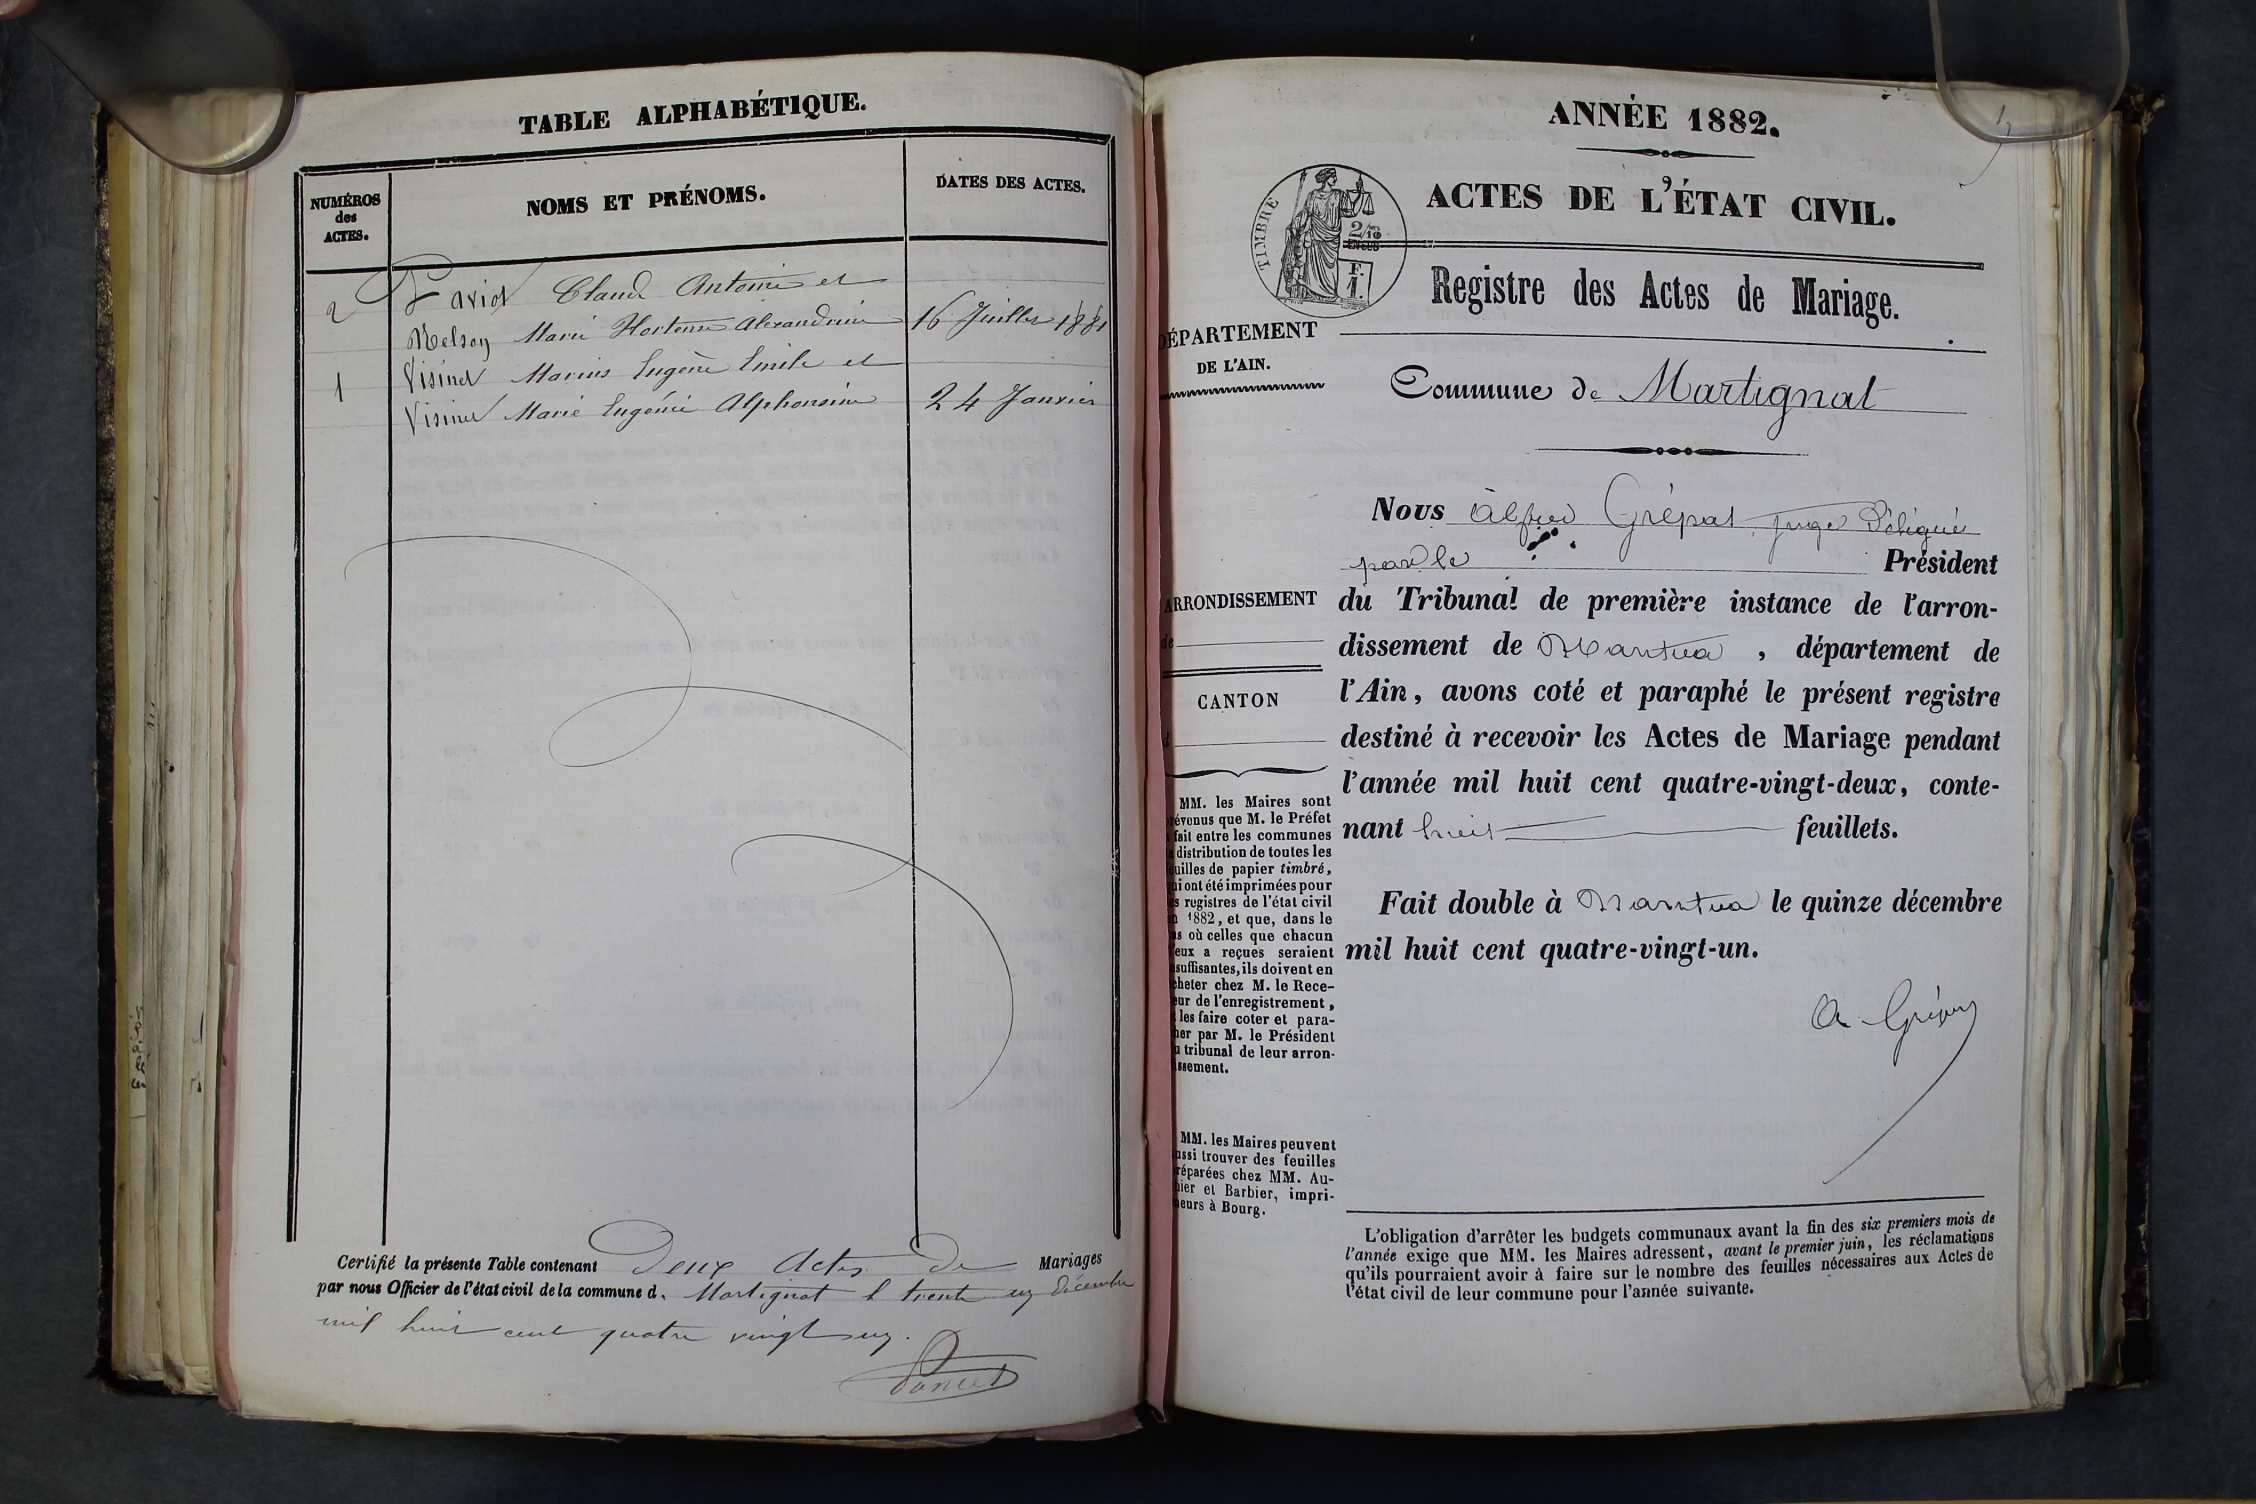 TABLE ALPHABÉTIQUE.
NUMÉROS
des
ACTES.
NOMS ET PRÉNOMS.
DATES DES ACTES.
2
Claude Antoine et
Marie Hortense Alexandrine 16 Juillet 1881
1
Visinet Marius Eugène Emile et
Visinet Marie Eugénie Alphonsine 24 Janvier
Certifié la présente Table contenant Deux Actes De Mariages
par nous Officier de l'état civil de la commune d. Martignat le trente un Décembre
mil huit cent quatre vingt un.
ANNÉE 1882.
ACTES DE L'ÉTAT CIVIL.
TIMBRE
2/10
EN SUS
F.
1.
Registre des Actes de Mariage.
DÉPARTEMENT
DE L'AIN.
Commune de Martignat
Nous Alfred Grépat juge Délégué
par le Président
du Tribunal de première instance de l'arron-
dissement de Nantua, département de
l'Ain, avons coté et paraphé le présent registre
destiné à recevoir les Actes de Mariage pendant
l'année mil huit cent quatre-vingt-deux, conte-
nant huit feuillets.
Fait double à Nantua le quinze décembre
mil huit cent quatre-vingt-un.
ARRONDISSEMENT
de
CANTON
d
MM. les Maires sont
révenus que M. le Préfet
fait entre les communes
distribution de toutes les
uilles de papier timbré,
ui ont été imprimées pour
s registres de l'état civil
n 1882, et que, dans le
as où celles que chacun
eux a reçues seraient
suffisantes, ils doivent en
cheter chez M. le Rece-
eur de l'enregistrement,
les faire coter et para-
her par M. le Président
u tribunal de leur arron-
issement.
MM. les Maires peuvent
ussi trouver des feuilles
réparées chez MM. Au-
hier et Barbier, impri-
meurs à Bourg.
L'obligation d'arrêter les budgets communaux avant la fin des six premiers mois de
l'année exige que MM. les Maires adressent, avant le premier juin, les réclamations
qu'ils pourraient avoir à faire sur le nombre des feuilles nécessaires aux Actes de
l'état civil de leur commune pour l'année suivante.